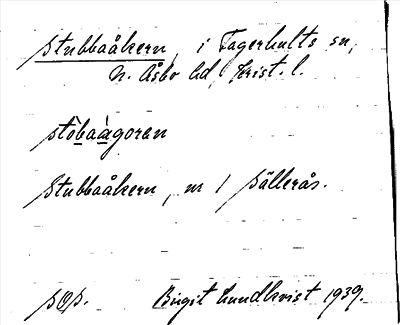 Stubbaåkern, i Fagerhults sn,
N. Åsbo hd, Krist. l.
stòbaàgoran
Stubbaåkern, m 1 Sällerås.
Birgit Lundkvist 1939.